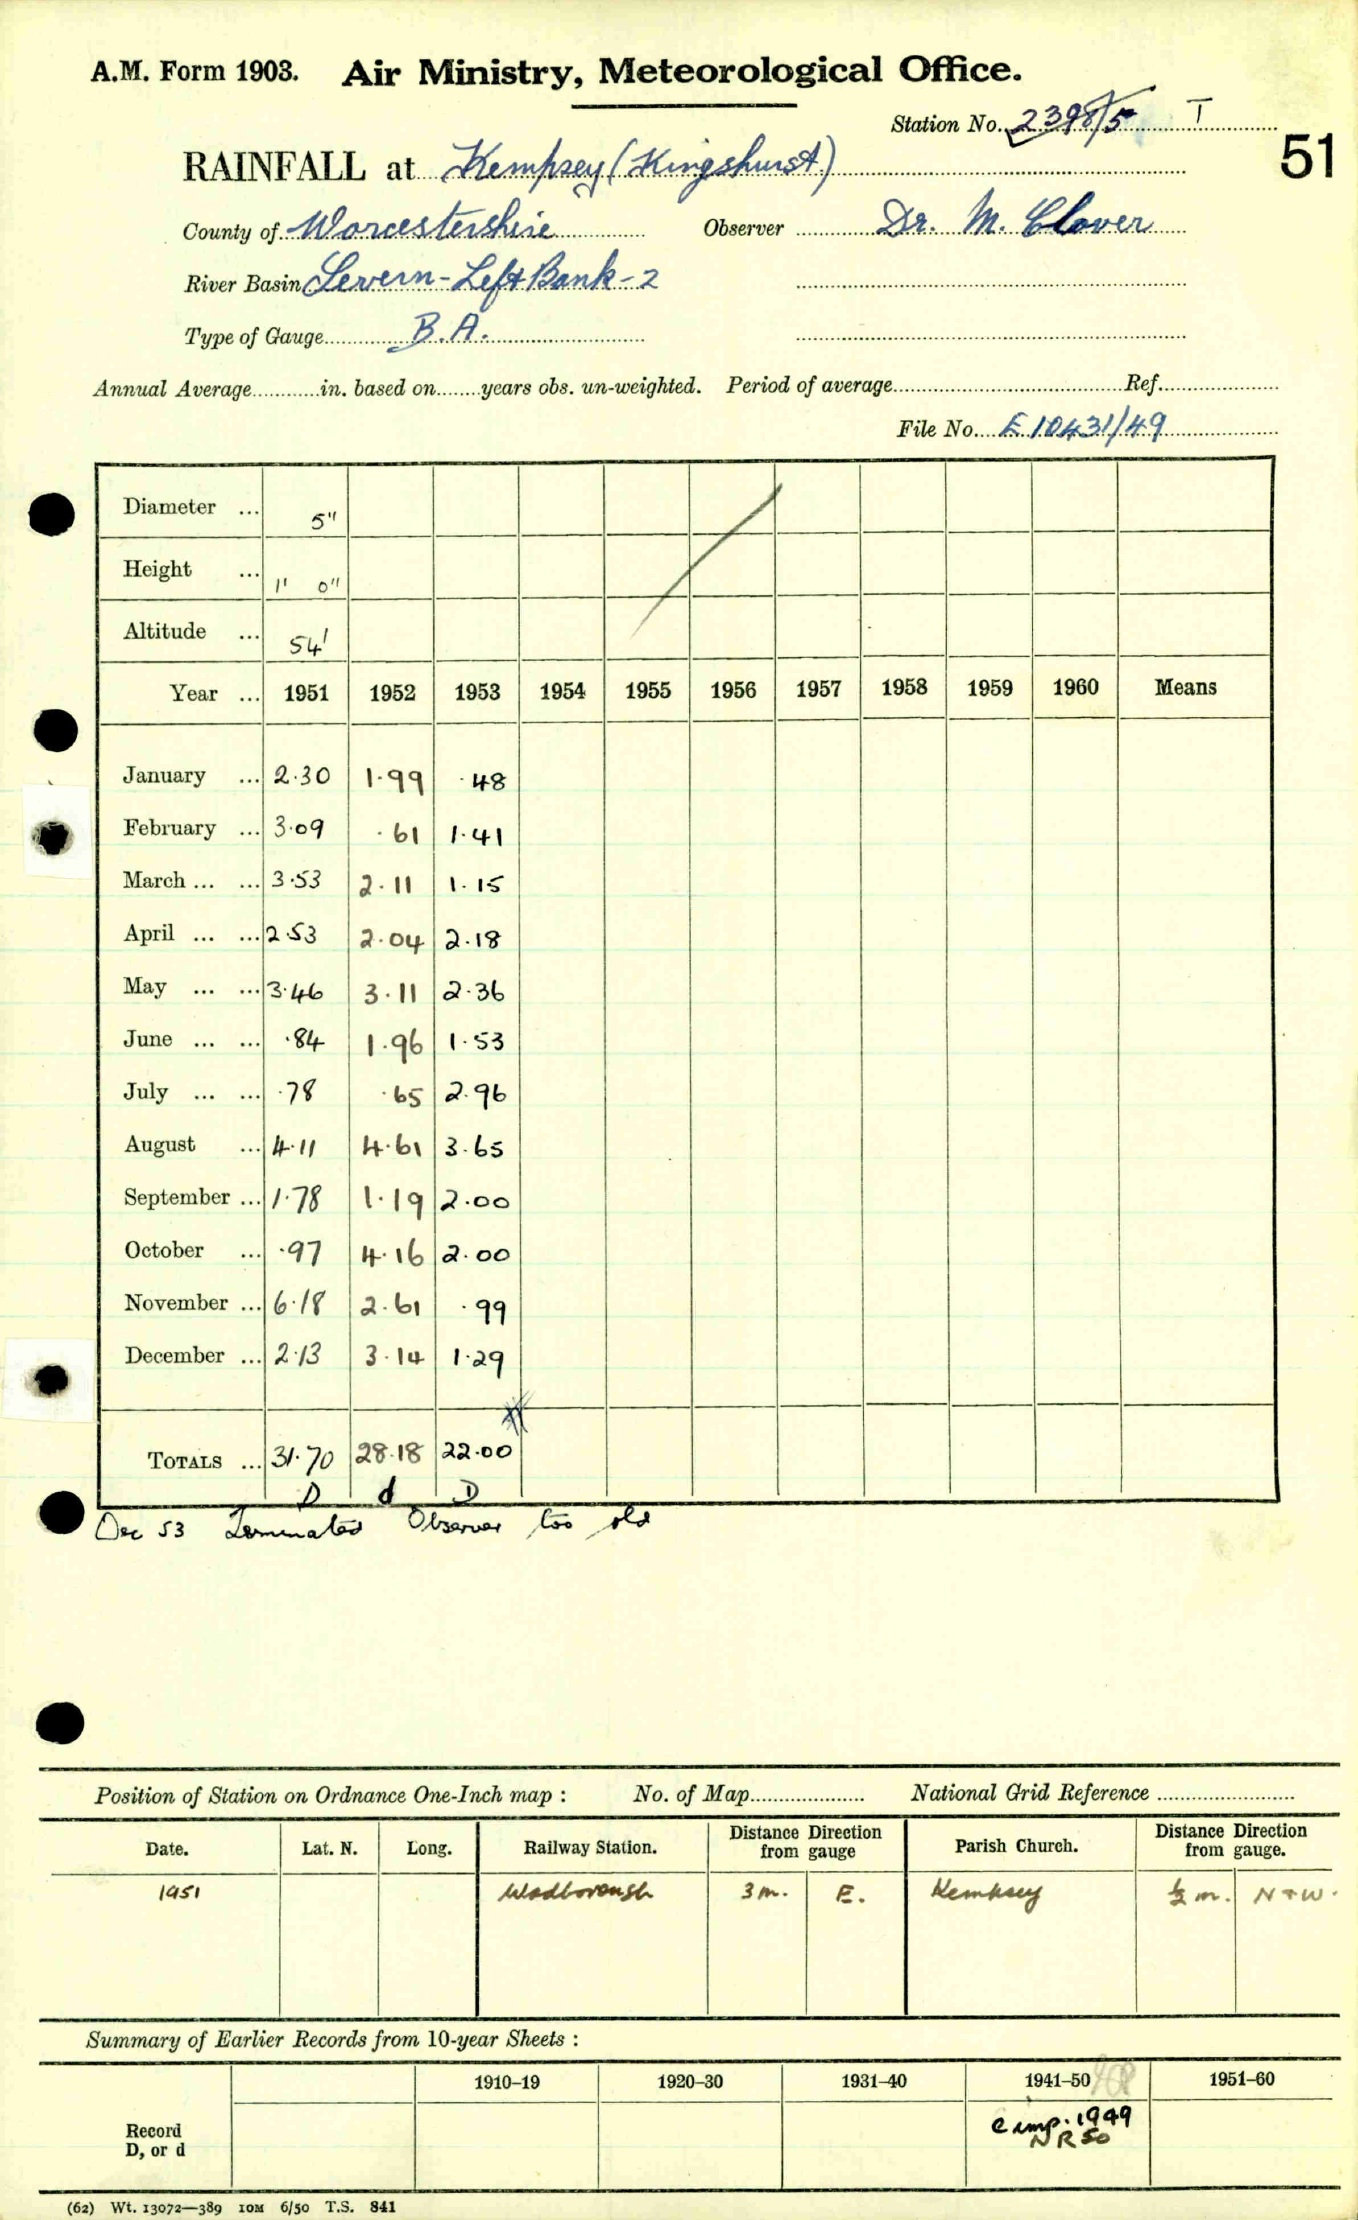 A.M. Form 1903. Air Ministry, Meteorological Office.
Station No. 2398/5 T
51
RAINFALL at Kempsey (Kingshurst)
County of Worcestershire Observer Dr. M. Clover
River Basin Severn - Left Bank - 2
Type of Gauge B.A.
Annual Average in. based on years obs. un-weighted. Period of average Ref.
File No. E 10431/49
Diameter ... 5"
Height ... 1' 0"
Altitude ... 54'
Year ... 1951 1952 1953 1954 1955 1956 1957 1958 1959 1960 Means
January ... 2.30 1.99 .48
February ... 3.09 .61 1.41
March ... ... 3.53 2.11 1.15
April ... ... 2.53 2.04 2.18
May ... ... 3.46 3.11 2.36
June ... ... .84 1.96 1.53
July ... ... .78 .65 2.96
August ... 4.11 4.61 3.65
September ... 1.78 1.19 2.00
October ... .97 4.16 2.00
November ... 6.18 2.61 .99
December ... 2.13 3.14 1.29
TOTALS ... 31.70 28.18 22.00
D d D
Dec 53 Terminated Observer too old
Position of Station on Ordnance One-Inch map : No. of Map National Grid Reference
Date. Lat. N. Long. Railway Station. Distance from Direction gauge Parish Church. Distance from Direction gauge.
1951 Wadborough 3 m. E. Kempsey ½ m. N + W.
Summary of Earlier Records from 10-year Sheets :
1910–19 1920–30 1931–40 1941–50 1951–60
Record
D, or d
comp. 1949
NR 50
(62) Wt. 13072—389 10M 6/50 T.S. 841